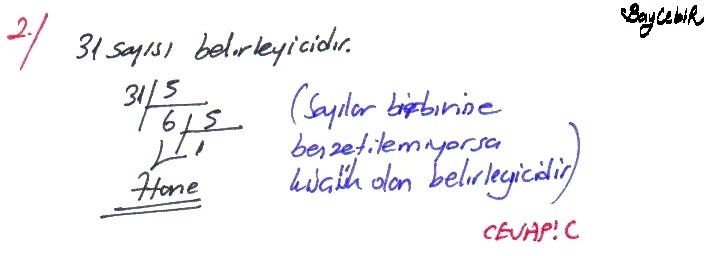 BayCebiR
2.) 31 sayısı belirleyicidir.
31 5
6 5
1
7 tane
(Sayılar birbirine
benzetilemiyorsa
küçük olan belirleyicidir)
CEVAP: C